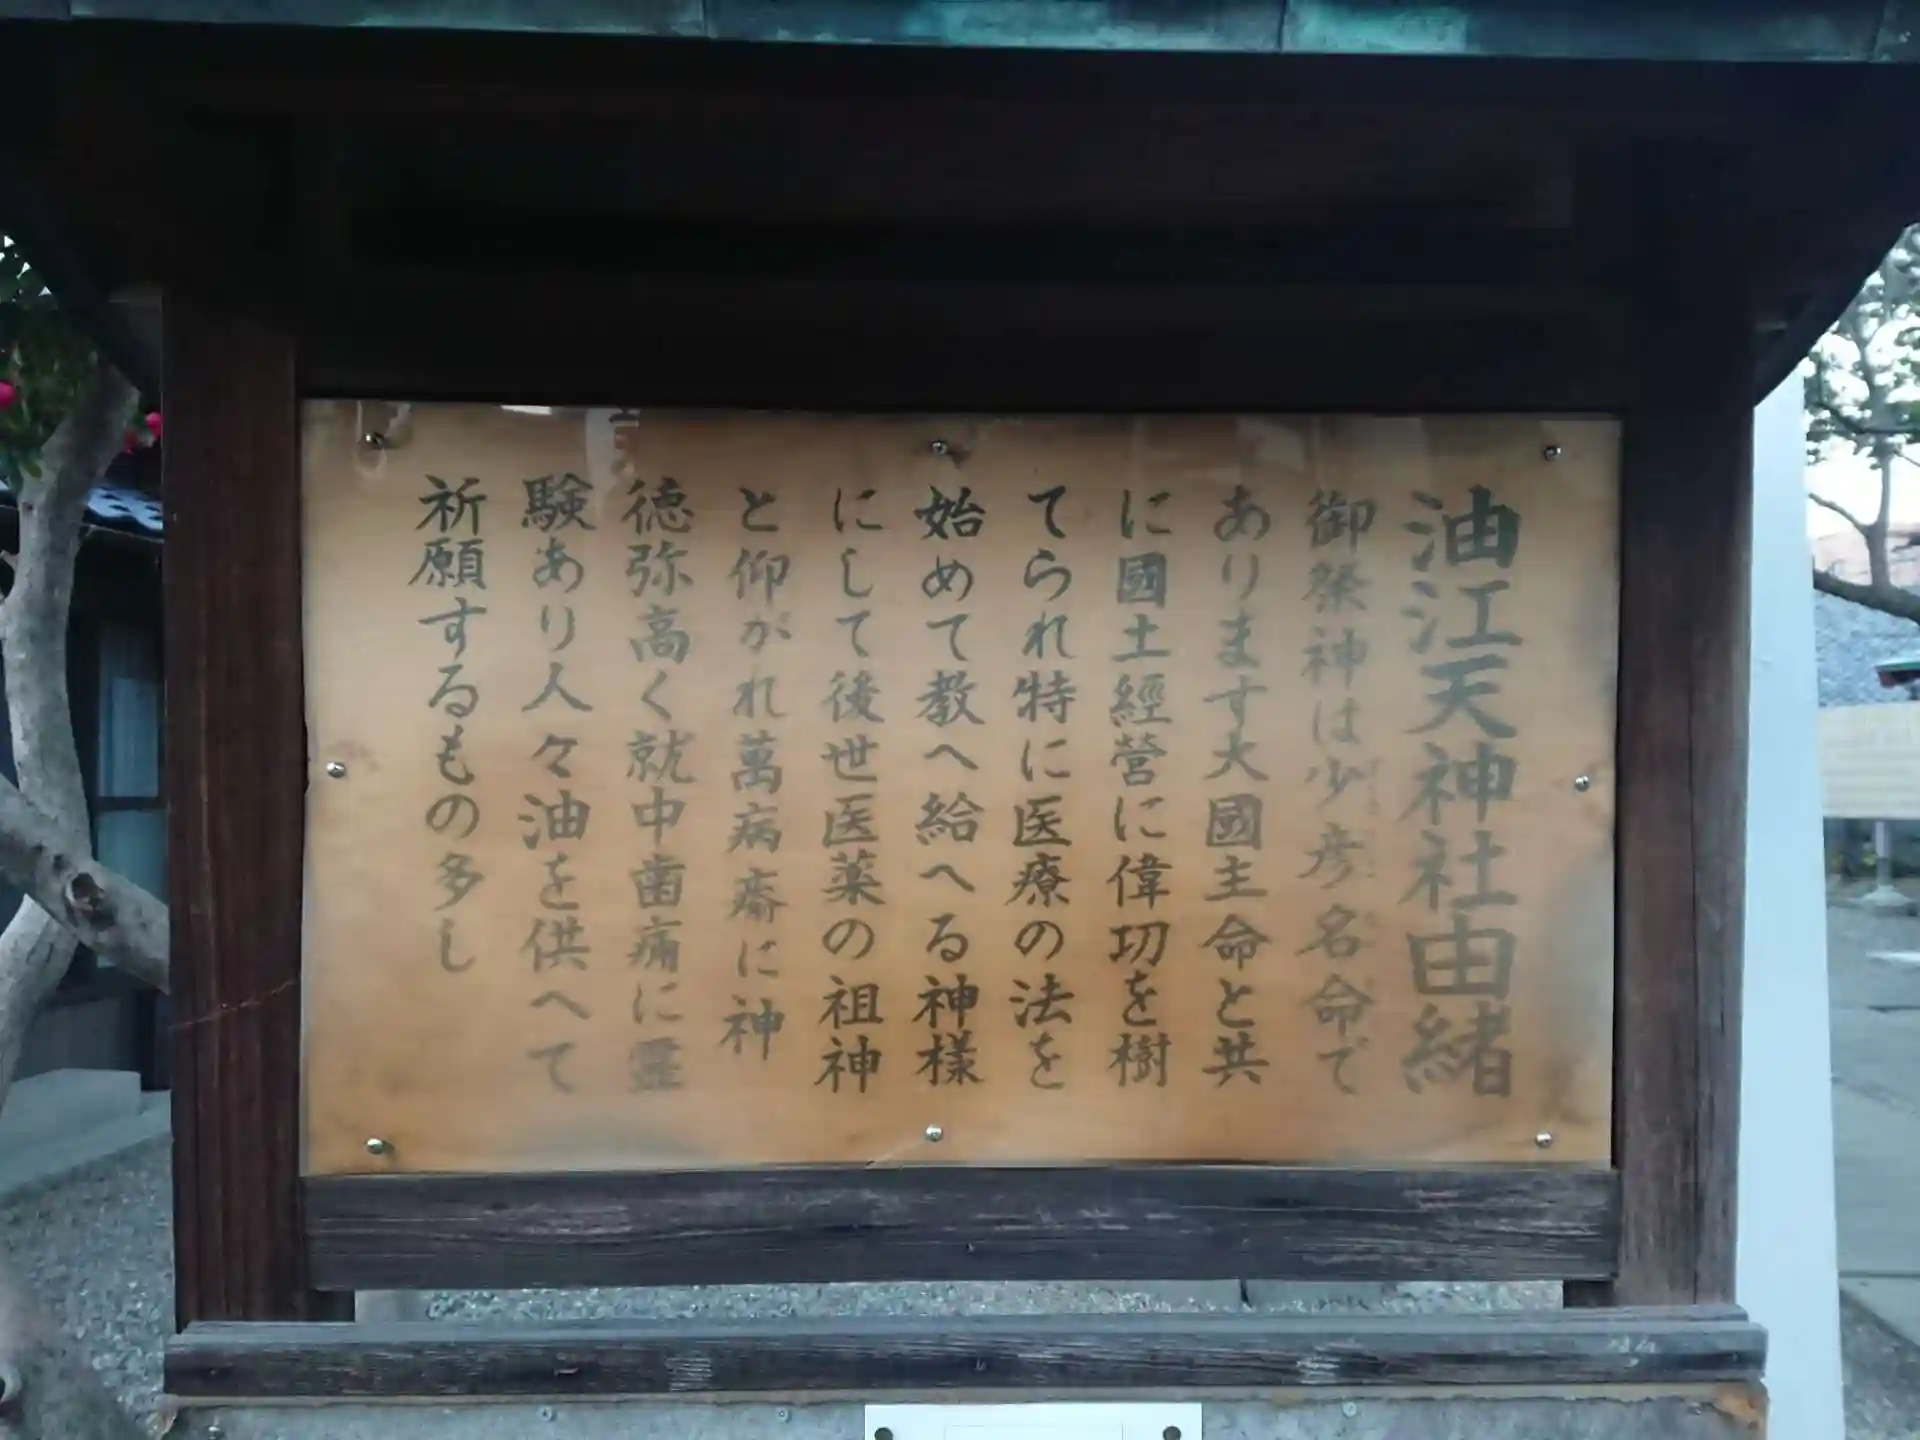 油江天神社由緒
御祭神は少彦名命で
あります大國主命と共
に國土經営に偉功を樹
てられ特に医療の法を
始めて教へ給へる神様
にして後世医薬の祖神
と仰がれ萬病斎に神
徳弥高く就中歯痛に霊
験あり人々油を供へて
祈願するもの多し